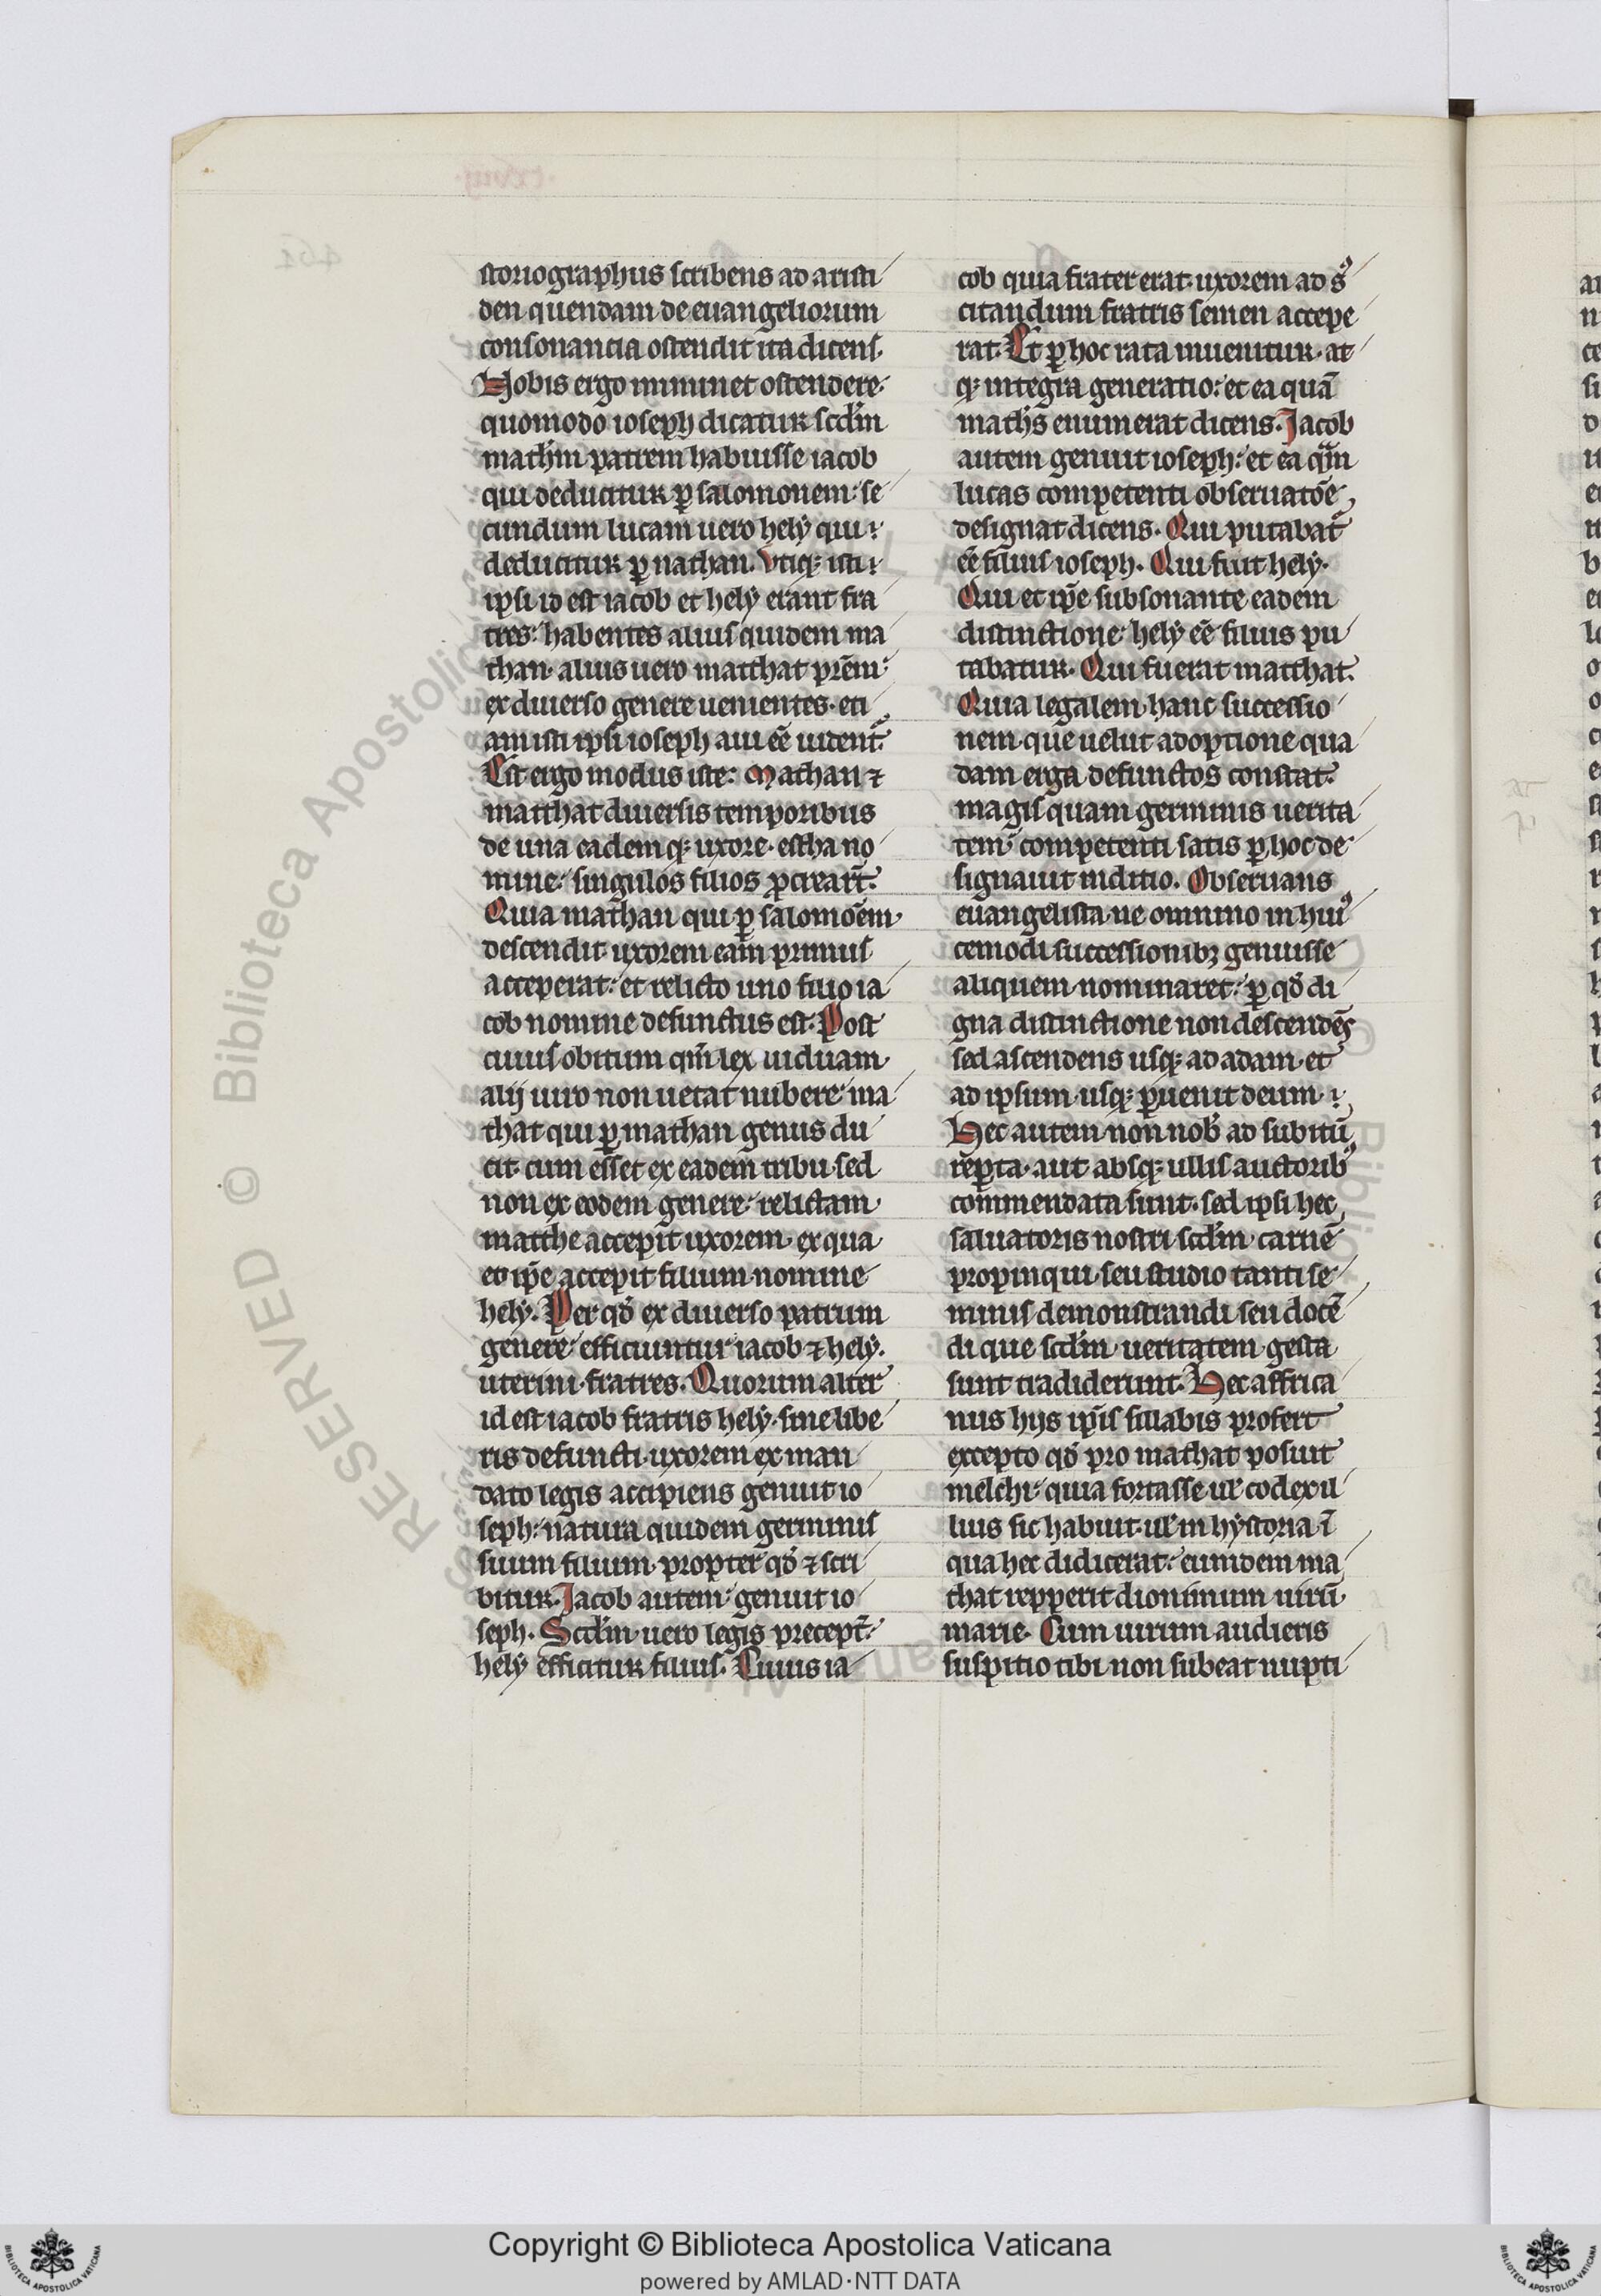 storiographus scribens ad aristi
den quendam de euangeliorum
consonancia ostendit ita dicens.
Nobis ergo imminet ostendere
quomodo ioseph dicatur scdm̄
math̄m patrem habuisse iacob
qui deducitur ꝑ salomonem: se
cundum lucam uero hely qui
deducitur ꝑ nathan. Vtiqꝫ isti
ipsi id est iacob et hely erant fra
tres: habentes alius quidem ma
than. alius uero matthat pr̄em:
ex diuerso genere uenientes. eti
am isti ipsi ioseph aui eē̄ uident᷑.
Est ergo modus iste: Mathan ⁊
matthat diuersis temporibus
de una eademqꝫ uxore. estha no
mine: singulos filios ꝓcrear̄t.
Quia mathan qui ꝑ salomoēm
descendit uxorem eam primus
acceperat: et relicto uno filio ia
cob nomine defunctus est. Post
cuius obitum qm̄ lex uiduam
alij uiro non uetat nubere ma
that qui ꝑ mathan genus du
cit. cum esset ex eadem tribu. sed
non ex eodem genere: relictam
matthe accepit uxorem. ex qua
et ip̄e accepit filium nomine
hely. Per qd̄ ex diuerso patrum
genere efficiuntur iacob ⁊ hely.
uterini fratres. Quorum alter
id est iacob fratris hely. sine libe
ris defuncti. uxorem ex man
dato legis accipiens genuit io
seph: natura quidem germinis
suum filium. propter qd̄ ⁊ scri
bitur. Iacob autem genuit io
seph. Scdm̄ uero legis precept̄:
hely efficitur filius. Cuius ia
cob quia frater erat. uxorem ad sꝰ
citandum fratris semen accepe
rat. Et ꝑ hoc rata inuenitur. at
qꝫ integra generatio: et ea quā
math̄s enumerat dicens. Iacob
autem genuit ioseph: et ea qm̄
lucas competenti obseruatōe
designat dicens. Qui putabat᷑
eē̄ filius ioseph. Qui fuit hely.
Qui et ip̄e subsonante eadem
distinctione: hely eē̄ filius pu
tabatur. Qui fuerat matthat.
Quia legalem hanc successio
nem. que uelut adoptione qua
dam erga defunctos constat:
magis quam germinis uerita
tem competenti satis ꝑ hoc de
signauit inditio. Obseruans
euangelista ne omnino in huiꝰ
cemodi successionibꝫ genuisse
aliquem nominaret: ꝑ qd̄ di
gna distinctione non descendēs
sed ascendens usqꝫ ad adam. et
ad ipsum usqꝫ ꝑuenit deum.
Hec autem non nob̄ ad subitū
reꝑta. aut absqꝫ ullis auctoribꝰ
commendata sunt. sed ipsi hec
saluatoris nostri scdm̄ carnē
propinqui. seu studio tanti se
minis demonstrandi seu docē
di que scdm̄ ueritatem gesta
sunt tradiderunt. Hec affrica
nus hijs ip̄is sillabis profert
excepto qd̄ pro mathat posuit
melchi: quia fortasse ul̄ codex il
lius sic habuit. ul̄ in hystoria ī
qua hec didicerat: eumdem ma
that repperit dionimum uirū
marie. Cum uirum audieris
suspitio tibi non subeat nupti
Copyright © Biblioteca Apostolica Vaticana
powered by AMLAD·NTT DATA